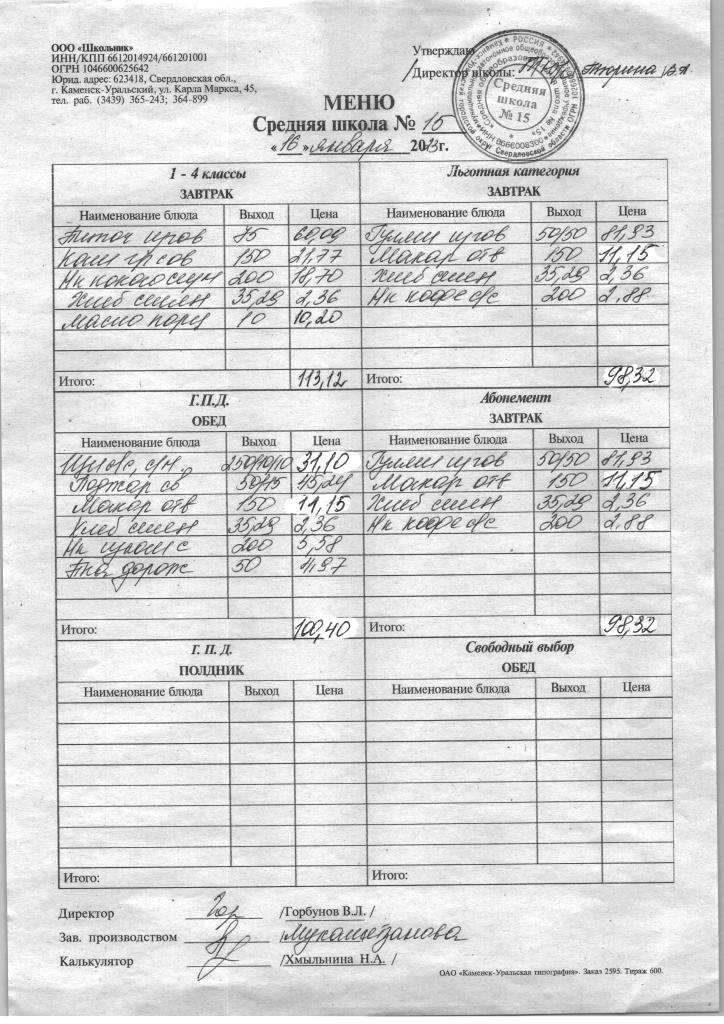 ООО «Школьник»
ИНН/КПП 6612014924/661201001
ОГРН 1046600625642
Юрид. адрес: 623418, Свердловская обл.,
г. Каменск-Уральский, ул. Карла Маркса, 45,
тел. раб. (3439) 365-243; 364-899
Утверждаю
Директор школы: Тюрина В.А.
Средняя школа № 15
МЕНЮ
Средняя школа № 15
«16» января 2023г.
1 - 4 классы
ЗАВТРАК
Наименование блюда Выход Цена
Биточ 75 60,09
Каш гр 150 21,77
200 18,70
Хлеб 35,29 2,36
Масло порц 10 10,20
Итого: 113,12
Льготная категория
ЗАВТРАК
Наименование блюда Выход Цена
Гуляш 50/50 81,93
Макар отв 150 11,15
Хлеб 35,29 2,36
Нк кофе с/с 200 2.88
Итого: 98,32
Г.П.Д.
ОБЕД
Наименование блюда Выход Цена
250/10/10 31,10
Поджар св 50/15 45,24
Макар отв 150 11,15
Хлеб 35,29 2,36
Нк 200 5,58
дорож 50 4,97
Итого: 100,40
Абонемент
ЗАВТРАК
Наименование блюда Выход Цена
Гуляш 50/50 81,93
Макар отв 150 11,15
Хлеб 35,29 2,36
Нк кофе с/с 200 2.88
Итого: 98,32
Г. П. Д.
ПОЛДНИК
Наименование блюда Выход Цена
Итого:
Свободный выбор
ОБЕД
Наименование блюда Выход Цена
Итого:
Директор /Горбунов В.Л. /
Зав. производством /Мухаметзанова
Калькулятор /Хмыльнина Н.А. /
ОАО «Каменск-Уральская типография». Заказ 2595. Тираж 600.